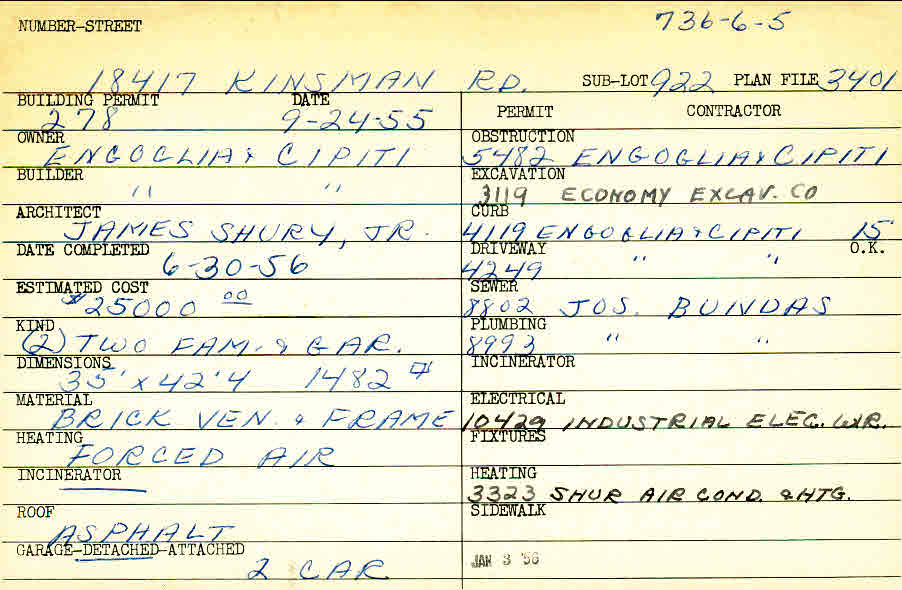 NUMBER-STREET 736-6-5
18417 KINSMAN RD. SUB-LOT 922 PLAN FILE 3401
BUILDING PERMIT DATE
278 9-24-55
OWNER
ENGOGLIA & CIPITI
BUILDER
" "
ARCHITECT
JAMES SHURY, JR.
DATE COMPLETED
6-30-56
ESTIMATED COST
$25000 00
KIND
(2) TWO FAM. & GAR.
DIMENSIONS
35' x 42'4 1482
MATERIAL
BRICK VEN. & FRAME
HEATING
FORCED AIR
INCINERATOR
ROOF
ASPHALT
GARAGE-DETACHED-ATTACHED
2 CAR
PERMIT CONTRACTOR
OBSTRUCTION
5482 ENGOGLIA & CIPITI
EXCAVATION
3119 ECONOMY EXCAV. CO
CURB
4119 ENGOGLIA & CIPITI 15'
DRIVEWAY O.K.
4249 " "
SEWER
8802 JOS. BUNDAS
PLUMBING
8993 " "
INCINERATOR
ELECTRICAL
10429 INDUSTRIAL ELEC. WR.
FIXTURES
HEATING
3323 SHUR AIR COND. & HTG.
SIDEWALK
JAN 3 '56